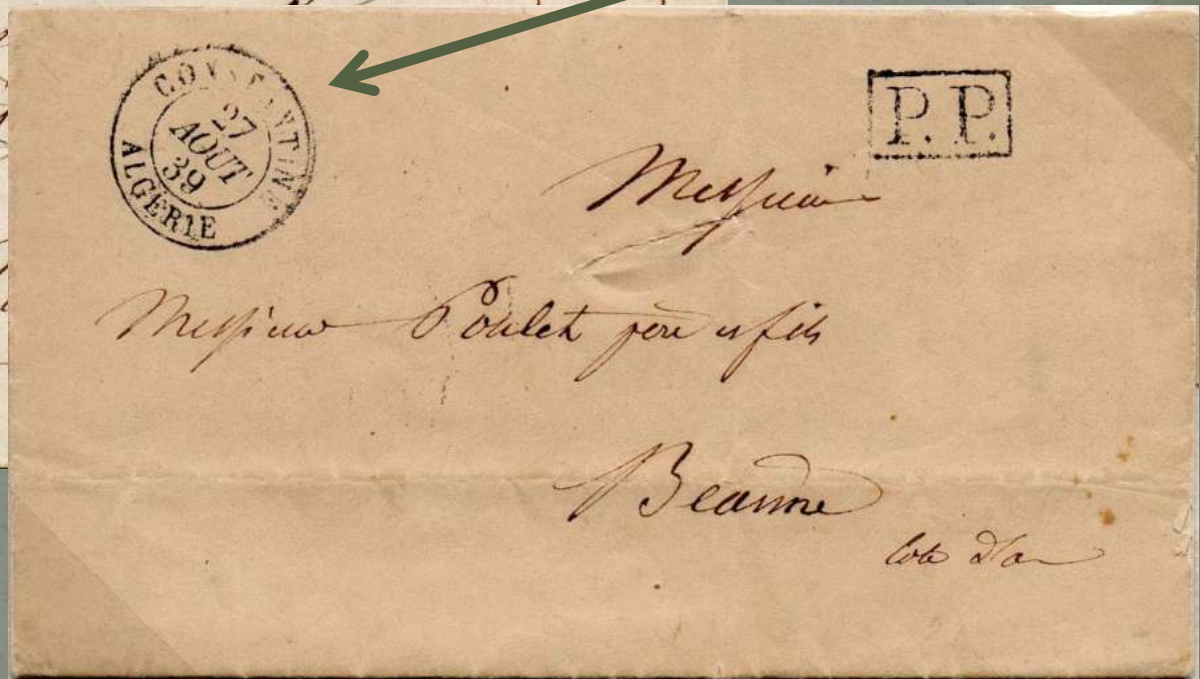 CONSTANTINE
27
AOUT
39
ALGERIE
P. P.
Messieurs
Messieurs Poulet père et fils
Beaune
Cote d'or